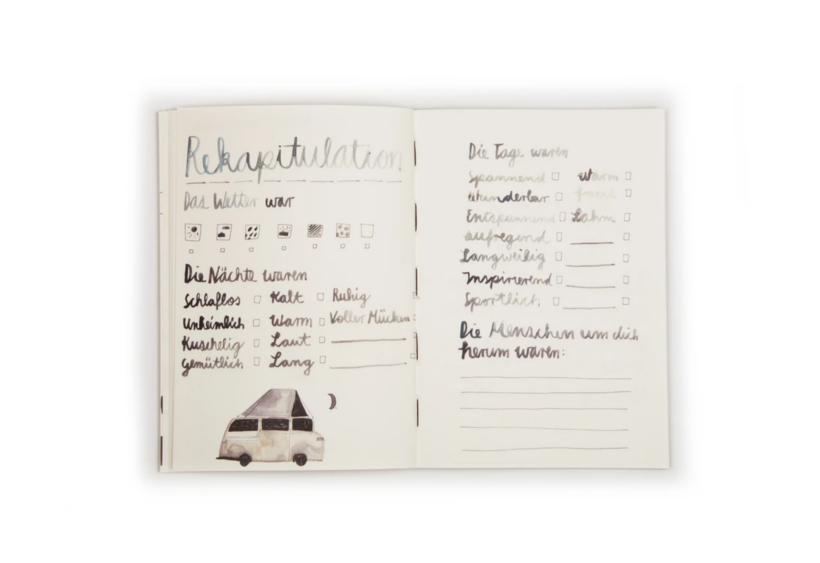 Rekapitulation
Das Wetter war
Die Nächte waren
Schlaflos Kalt Ruhig
Unheimlich Warm Voller Mücken
Kuschelig Laut
Gemütlich Lang
Die Tage waren
Spannend Warm
Wunderbar
Entspannend Lahm
Aufregend
Langweilig
Inspirierend
Sportlich
Die Menschen um dich
herum waren: